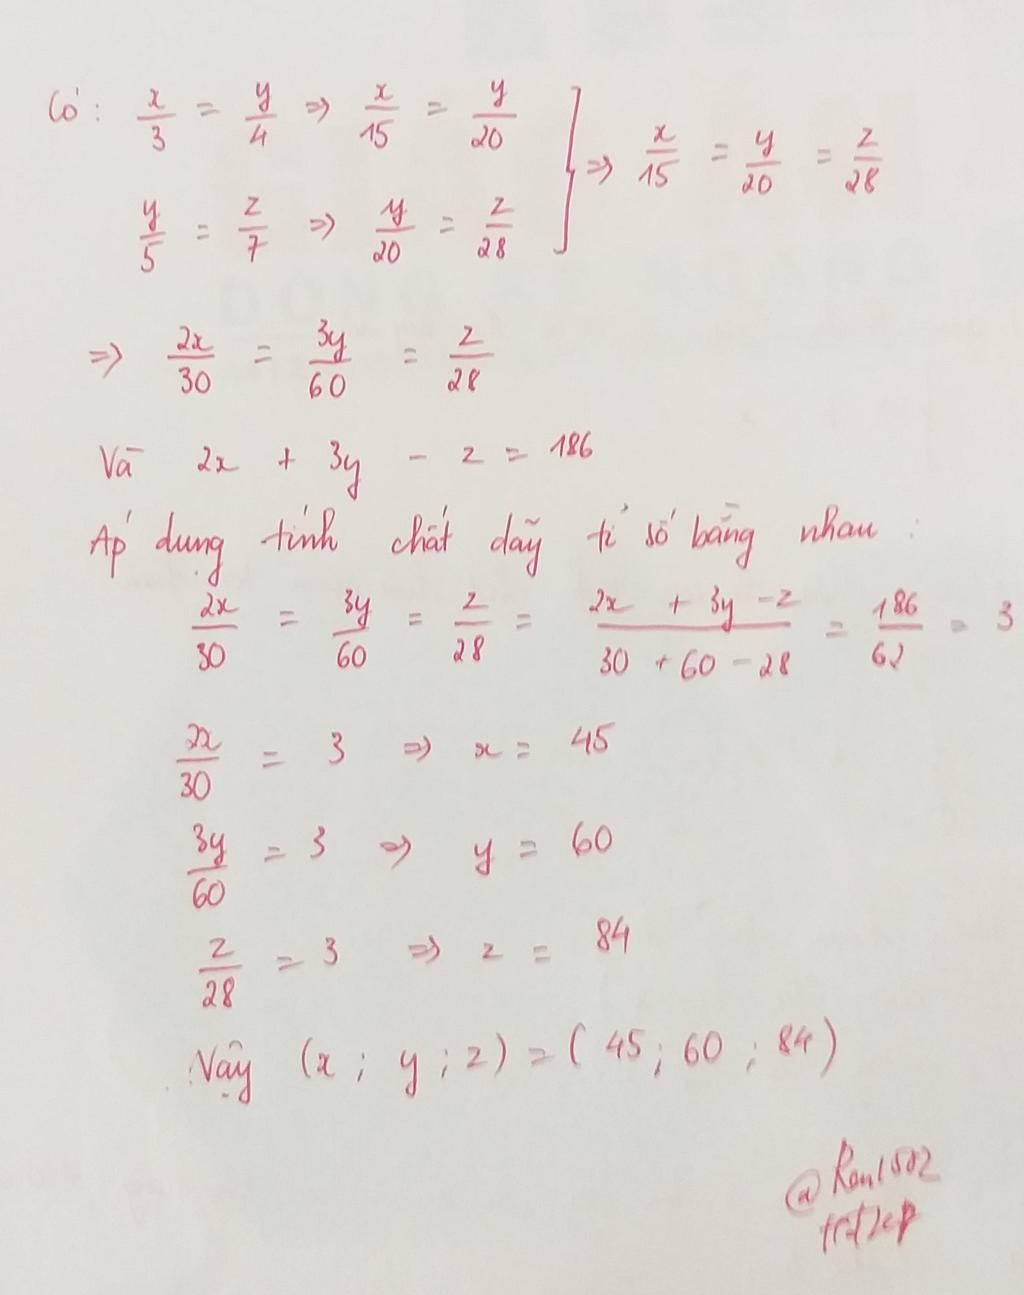 Có: x/3 = y/4 => x/15 = y/20
y/5 = z/7 => y/20 = z/28
=> x/15 = y/20 = z/28
=> 2x/30 = 3y/60 = z/28
Và 2x + 3y - z = 186
Áp dụng tính chất dãy tỉ số bằng nhau:
2x/30 = 3y/60 = z/28 = (2x + 3y - z)/(30 + 60 - 28) = 186/62 = 3
2x/30 = 3 => x = 45
3y/60 = 3 => y = 60
z/28 = 3 => z = 84
Vậy (x; y; z) = (45; 60; 84)